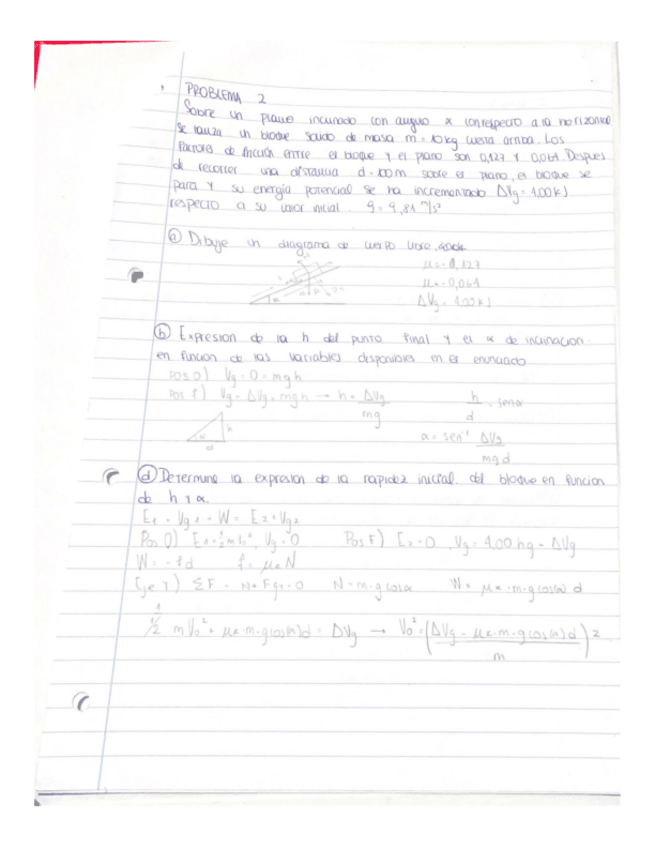 PROBLEMA 2
Sobre un plano inclinado con angulo α con respecto a la horizontal
se lanza un bloque solido de masa m = 10 kg cuesta arriba. Los
factores de fricción entre el bloque y el plano son 0,127 y 0,061. Despues
de recorrer una distancia d = 100m sobre el plano, el bloque se
para y su energia potencial se ha incrementado ΔVg = 1.00 kJ
respecto a su valor inicial. g = 9,81 m/s²
ⓐ Dibuje un diagrama de cuerpo libre
μ = 0,127
μk = 0,061
ΔVg = 1.00 kJ
ⓑ Expresion de la h del punto final y el α de inclinacion.
en funcion de las variables disponibles en el enunciado
Pos 0) Vg = 0 = mgh
Pos f) Vg = ΔVg = mgh → h = ΔVg / mg
h / d = sen α
α = sen⁻¹ ΔVg / mgd
ⓓ Determine la expresion de la rapidez inicial del bloque en funcion
de h y α.
E1 + Vg1 + W = E2 + Vg2
Pos 0) E1 = ½ m V0², Vg = 0 Pos F) E2 = 0, Vg = 1.00 = ΔVg
W = - f d f = μk N
Eje Y) ΣF = N - Fgy = 0 N = m · g cos α W = μk · m · g cos(α) d
½ m V0² + μk · m · g cos(α) d = ΔVg → V0² = (ΔVg - μk · m · g cos(α) d / m) 2